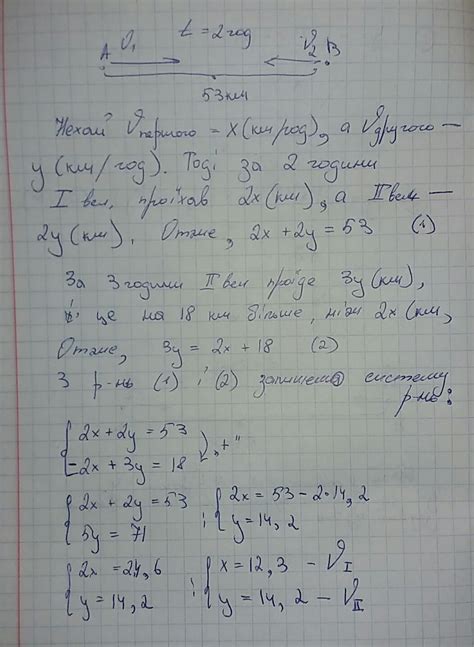 t = 2 год
A ϑ₁ ϑ₂ B
53 км
Нехай ϑпершого = x (км/год), а ϑдругого —
y (км/год). Тоді за 2 години
I вел. проїхав 2x (км), а II вел —
2y (км). Отже, 2x + 2y = 53 (1)
За 3 години II вел проїде 3y (км),
і це на 18 км більше, ніж 2x (км,
Отже, 3y = 2x + 18 (2)
З р-нь (1) і (2) запишемо систему
р-нь:
{ 2x + 2y = 53
{ -2x + 3y = 18 „+"
{ 2x + 2y = 53 ; { 2x = 53 - 2·14,2
{ 5y = 71 { y = 14,2
{ 2x = 24,6 ; { x = 12,3 - ϑI
{ y = 14,2 { y = 14,2 - ϑII